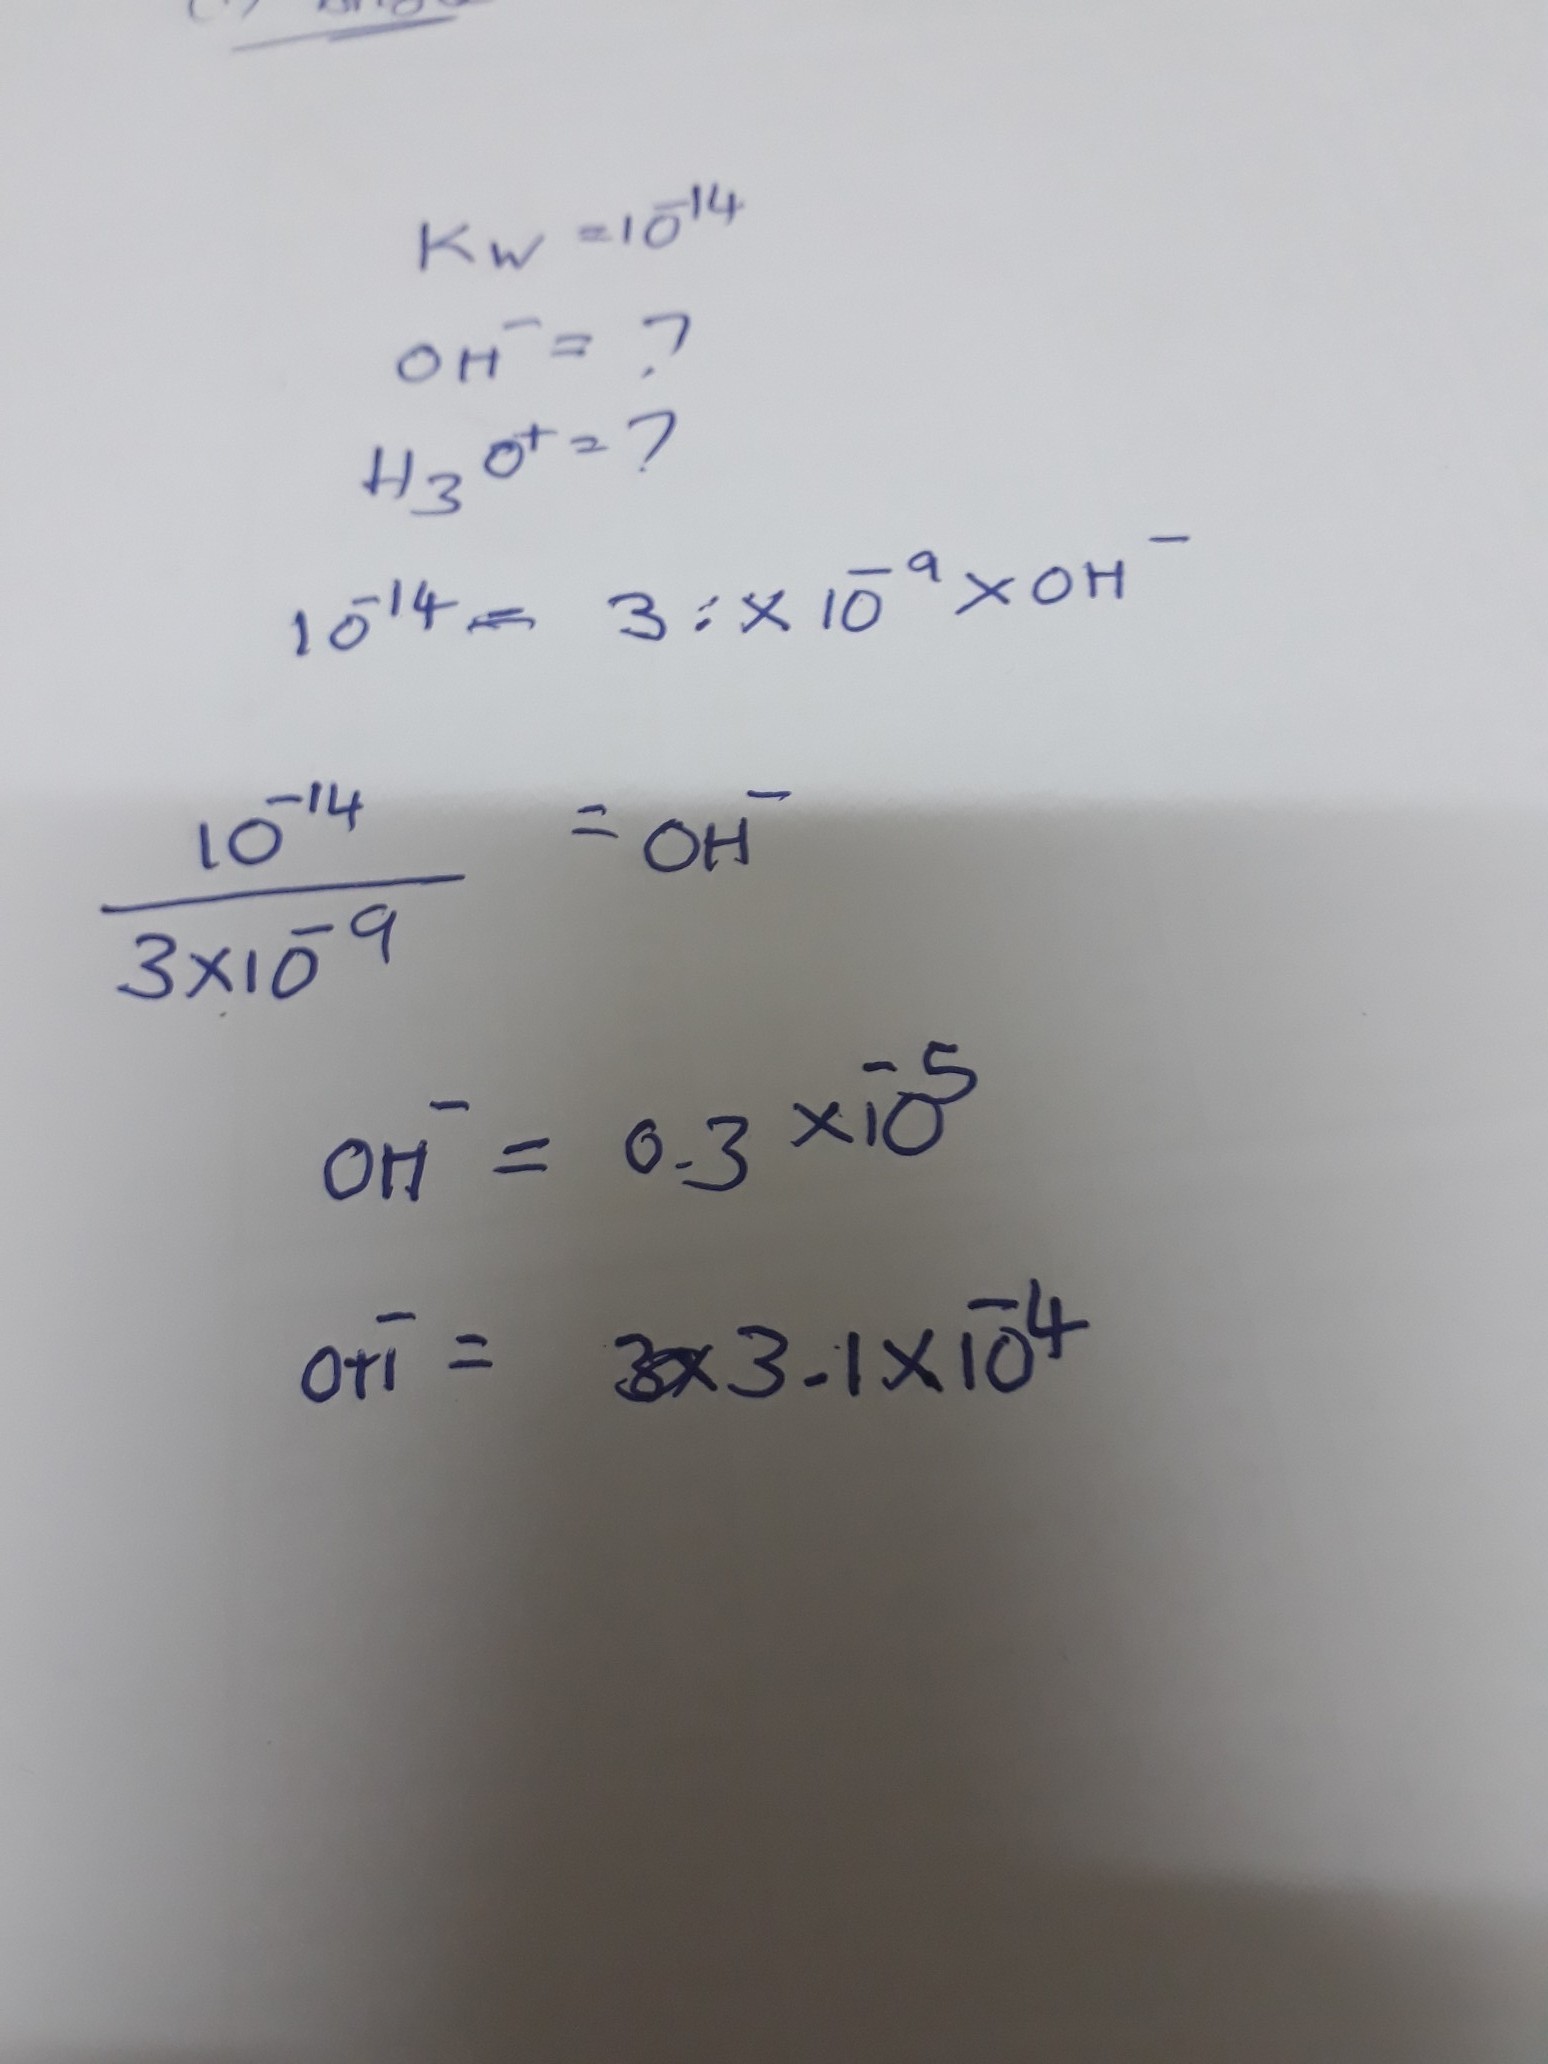 Kw = 10⁻¹⁴
OH⁻ = ?
H₃O⁺ = ?
10⁻¹⁴ = 3 . × 10⁻⁹ × OH⁻
10⁻¹⁴ = OH⁻
3×10⁻⁹
OH⁻ = 0.3 × 10⁻⁵
OH⁻ = 3.1 × 10⁻⁴